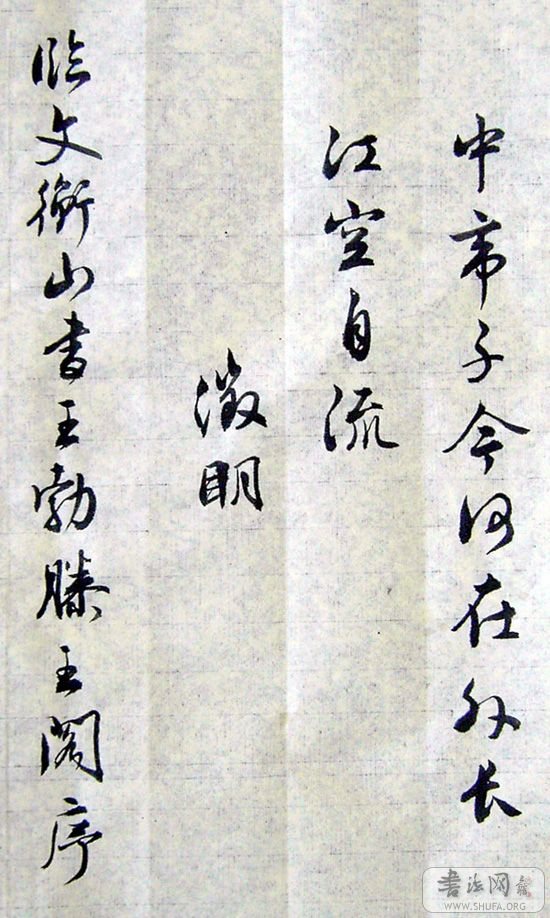 中帝子今何在外长
江空自流
徵明
临文衡山书王勃滕王阁序
书法网
WWW.SHUFA.ORG